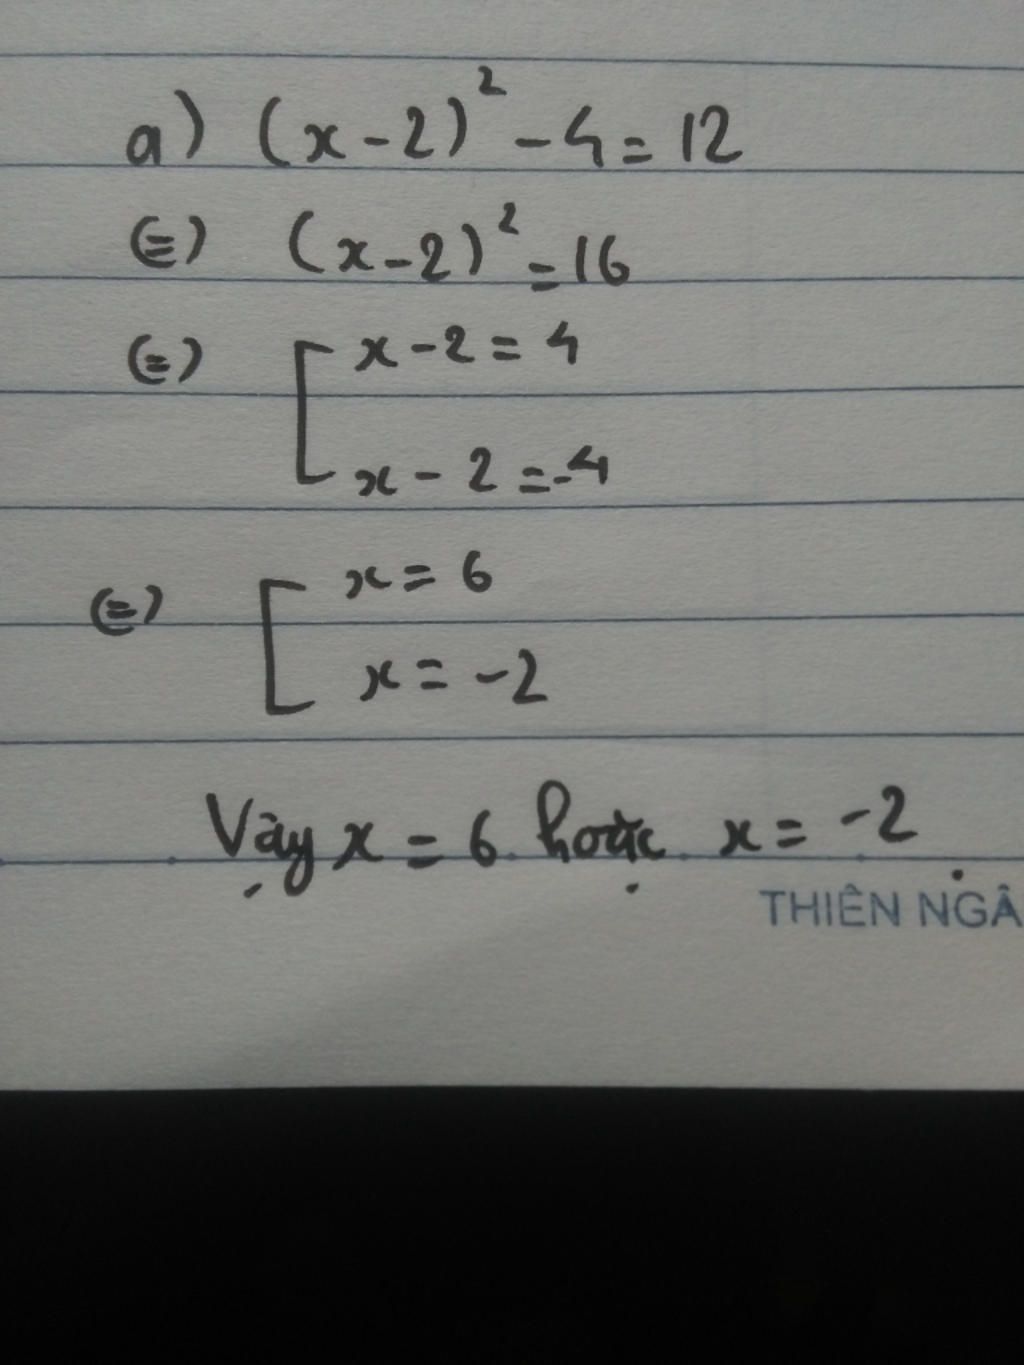 a) (x-2)² - 4 = 12
(=) (x-2)² = 16
(=) [ x-2 = 4
x - 2 = -4
(=) [ x = 6
x = -2
Vậy x = 6 hoặc x = -2.
THIÊN NGÂ